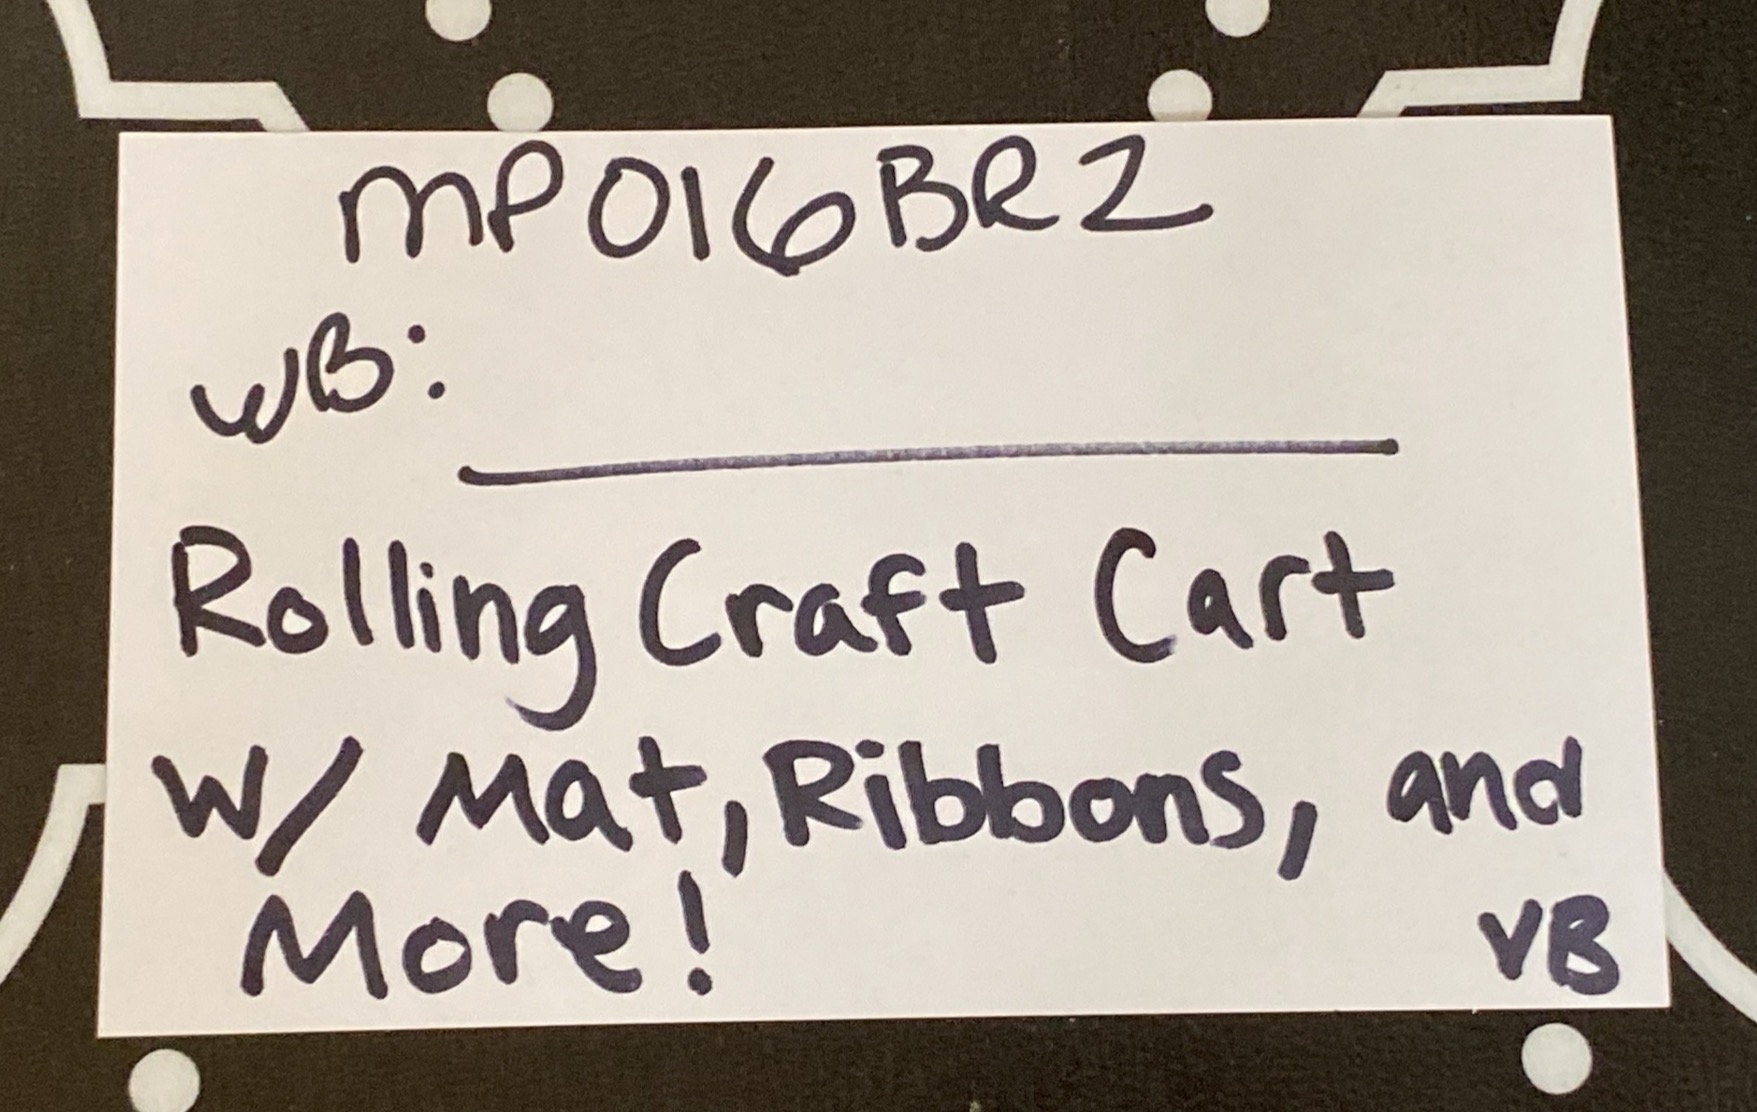 MP016BR2
WB:
Rolling Craft Cart
W/ Mat, Ribbons, and
More!
VB